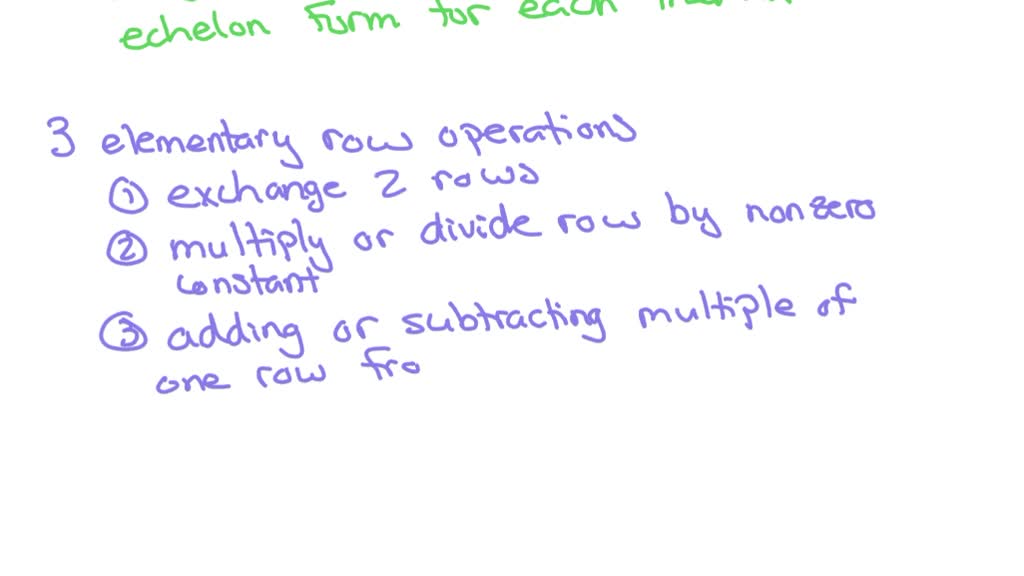 echelon form for each
3 elementary row operations
① exchange 2 rows
② multiply or divide row by nonzero
constant
③ adding or subtracting multiple of
one row fro